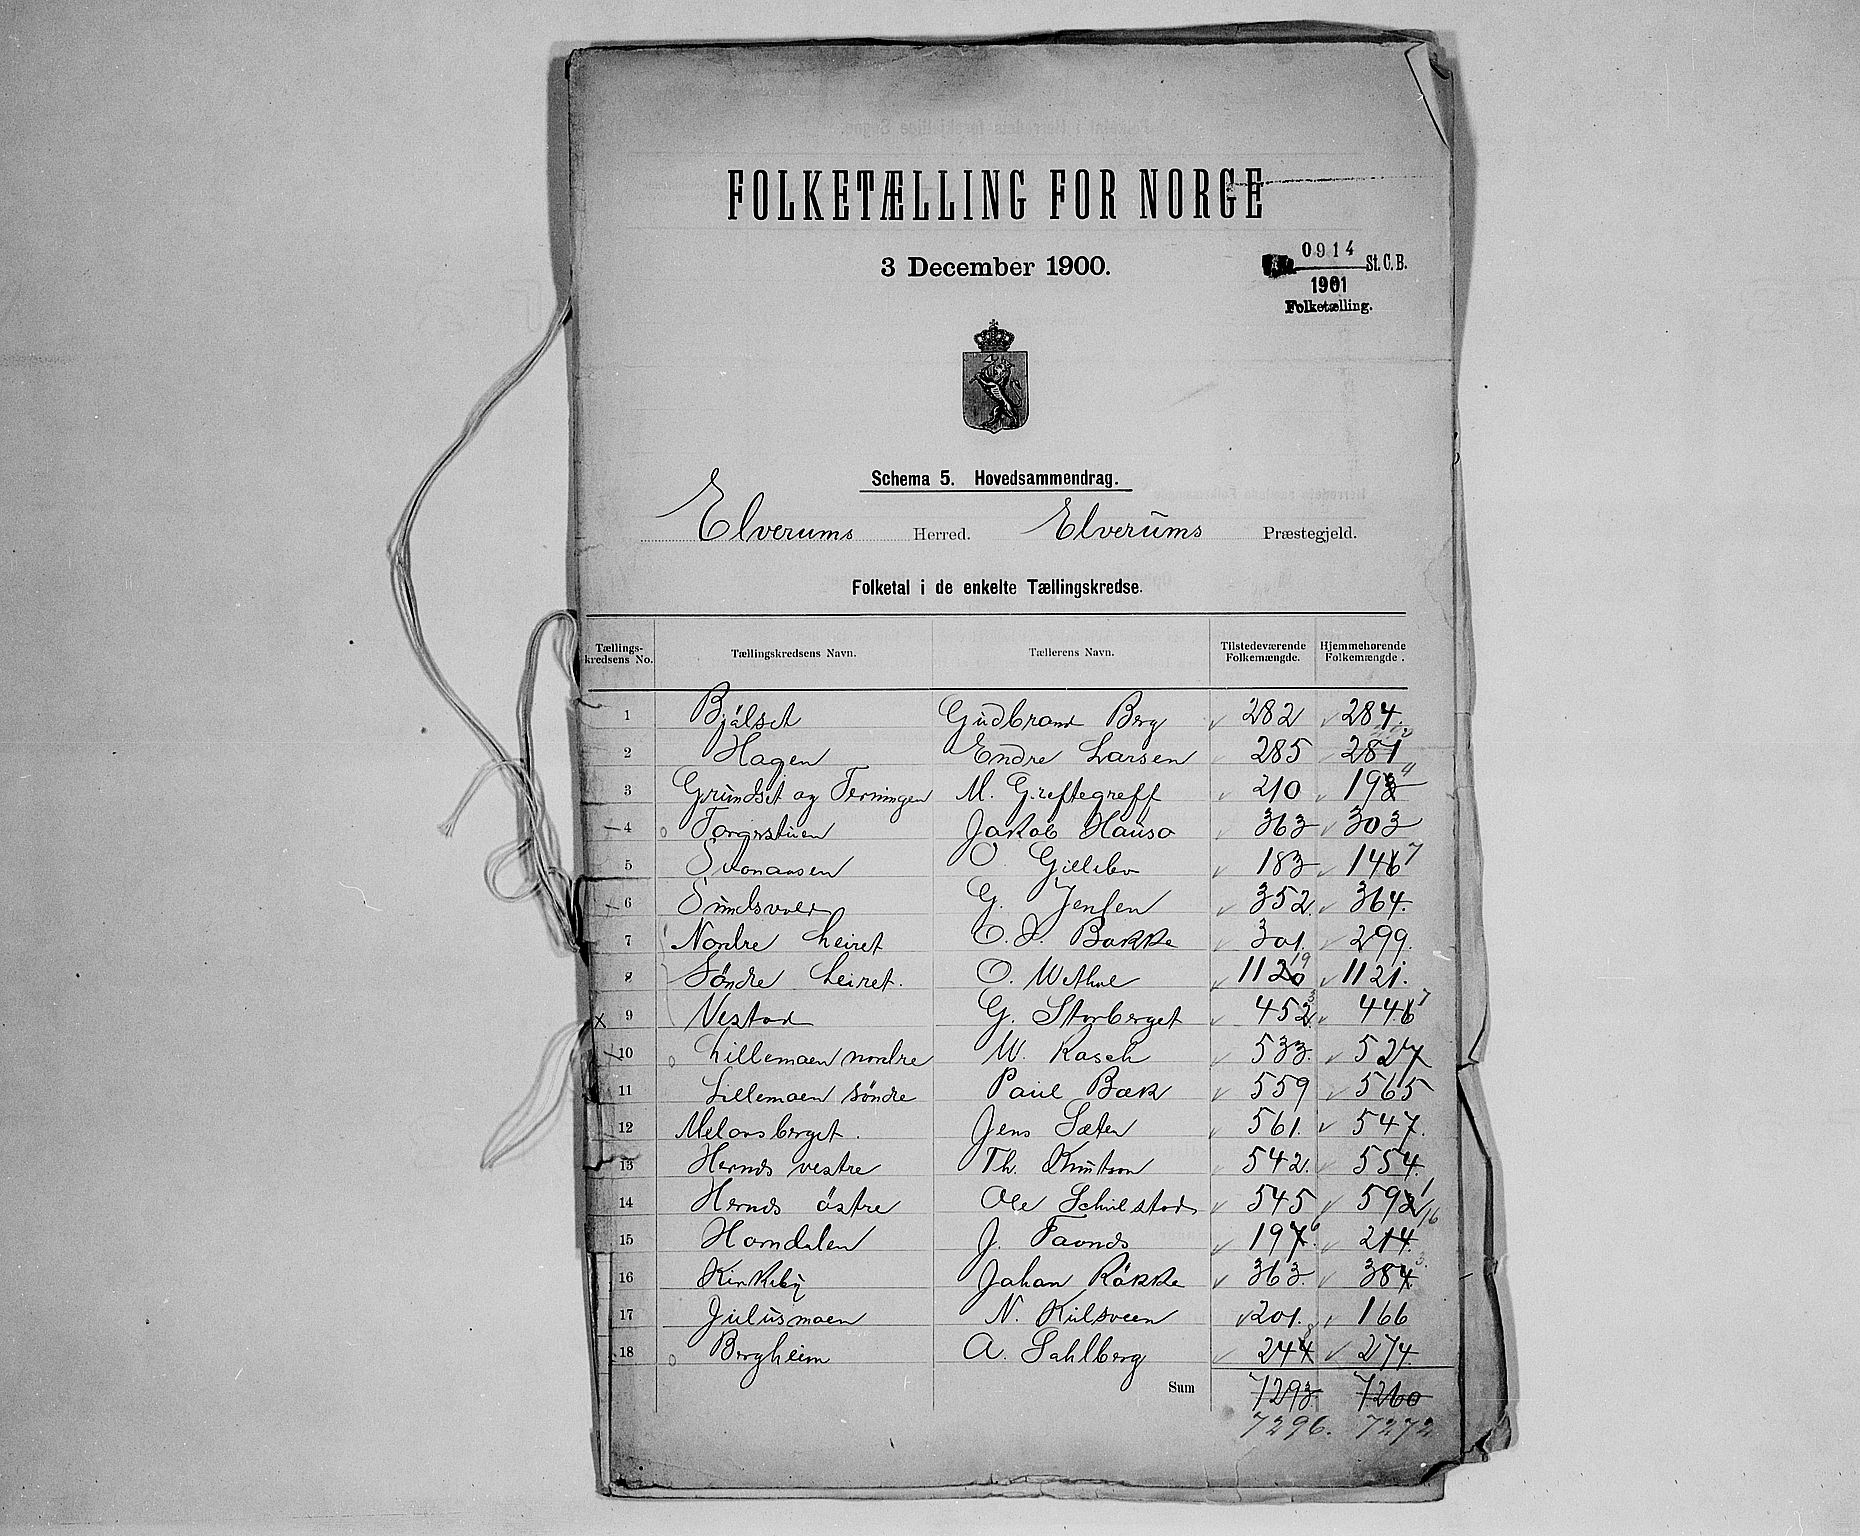 FOLKETÆLLING FOR NORGE
3 December 1900.
0914 St. C. B.
1901
Folketælling.
Schema 5. Hovedsammendrag.
Elverums Herred. Elverums Præstegjeld.
Folketal i de enkelte Tællingskredse.
Tællings-kredsens No. Tællingskredsens Navn. Tællerens Navn. Tilstedeværende Folkemængde. Hjemmehørende Folkemængde.
1 Bjölset Gudbrand Berg 282 284.
2 Hagen Endre Larsen 285 281
3 Grundset og Terningen M. Greftegreff 210 198 4
4 Torgerstuen Jakob Hauso 363 303
5 O. 183 146 7
6 Sundsvold G. Jensen 352. 364.
7 Nordre Leiret O. J. Bakke 301. 299.
8 Söndre Leiret. O. 1120 19 1121.
9 Vestad G. Storberget 452 3 446 7
10 Lillemoen nordre W. Rasch 533. 527
11 Lillemoen söndre Paul Bæk 559 565
12 Melaasberget. Jens Sæter 561. 547.
13 Hernes vestre Th. Knutson 542. 554.
14 Hernes östre Ole 545 592 1
15 Horndalen J. 197 6 214. 16
16 Kirkeby Johan Rökke 363. 384 3.
17 Julusmoen N. Kilsveen 201. 166
18 Bergheim A. Sahlberg 244 8 274.
Sum 7293. 7260
7296. 7272